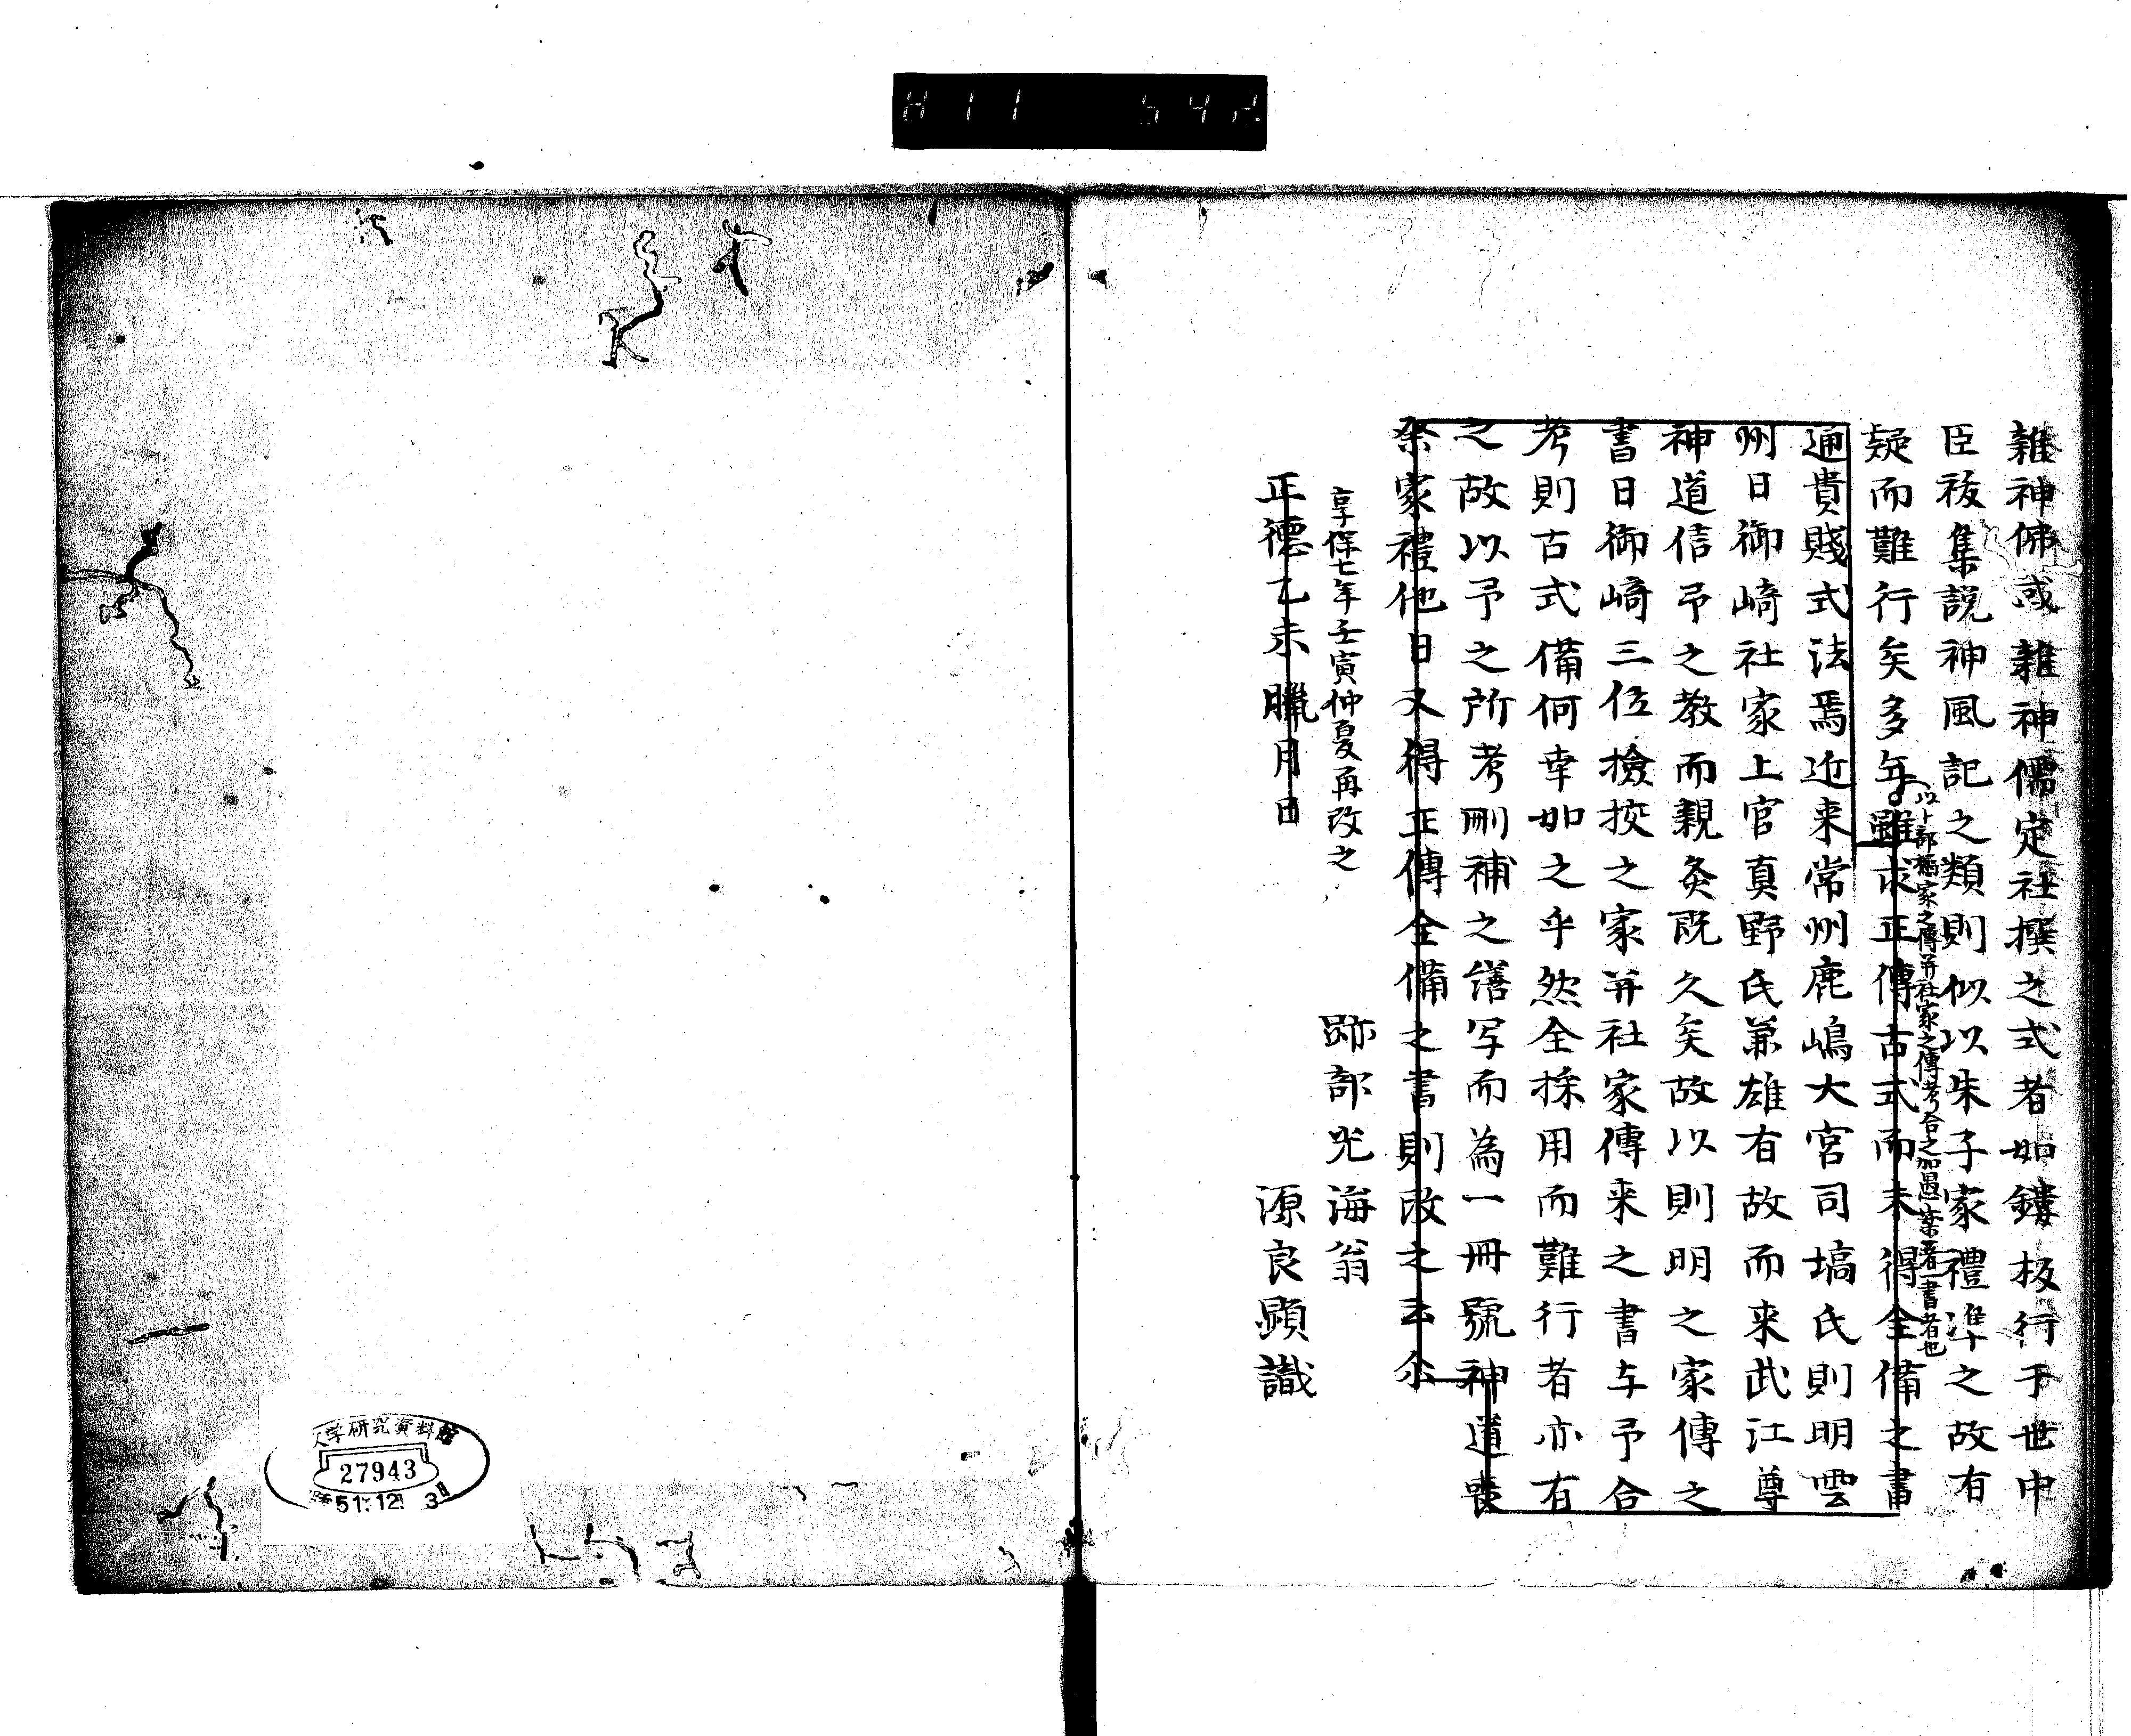 雜神佛或雜神儒定社撰之式者如鏤板行于世中
臣祓集説神風記之類則似以朱子家禮準之故有
疑而難行矣多年雖求正傳古式而未得全備之書
以卜部橘家之傳并社家之傳考合之加愚案著一書者也
通貴賤式法焉近来常州鹿嶋大宮司塙氏則明雲
州日御﨑社家上官真野氏兼雄有故而来武江尊
神道信予之教而親炙既久矣故以則明之家傳之
書日御﨑三位撿挍之家并社家傳来之書与予合
考則古式備何幸如之乎然全採用而難行者亦有
之故以予之所考刪補之繕写而為一冊號神道喪
祭家禮他日又得正傳全備之書則改之云尒
享保七年壬寅仲夏再改之
跡部光海翁
正德乙未臘月日
源良顕識
文学研究資料館
27943
51.12. 3
H11 542